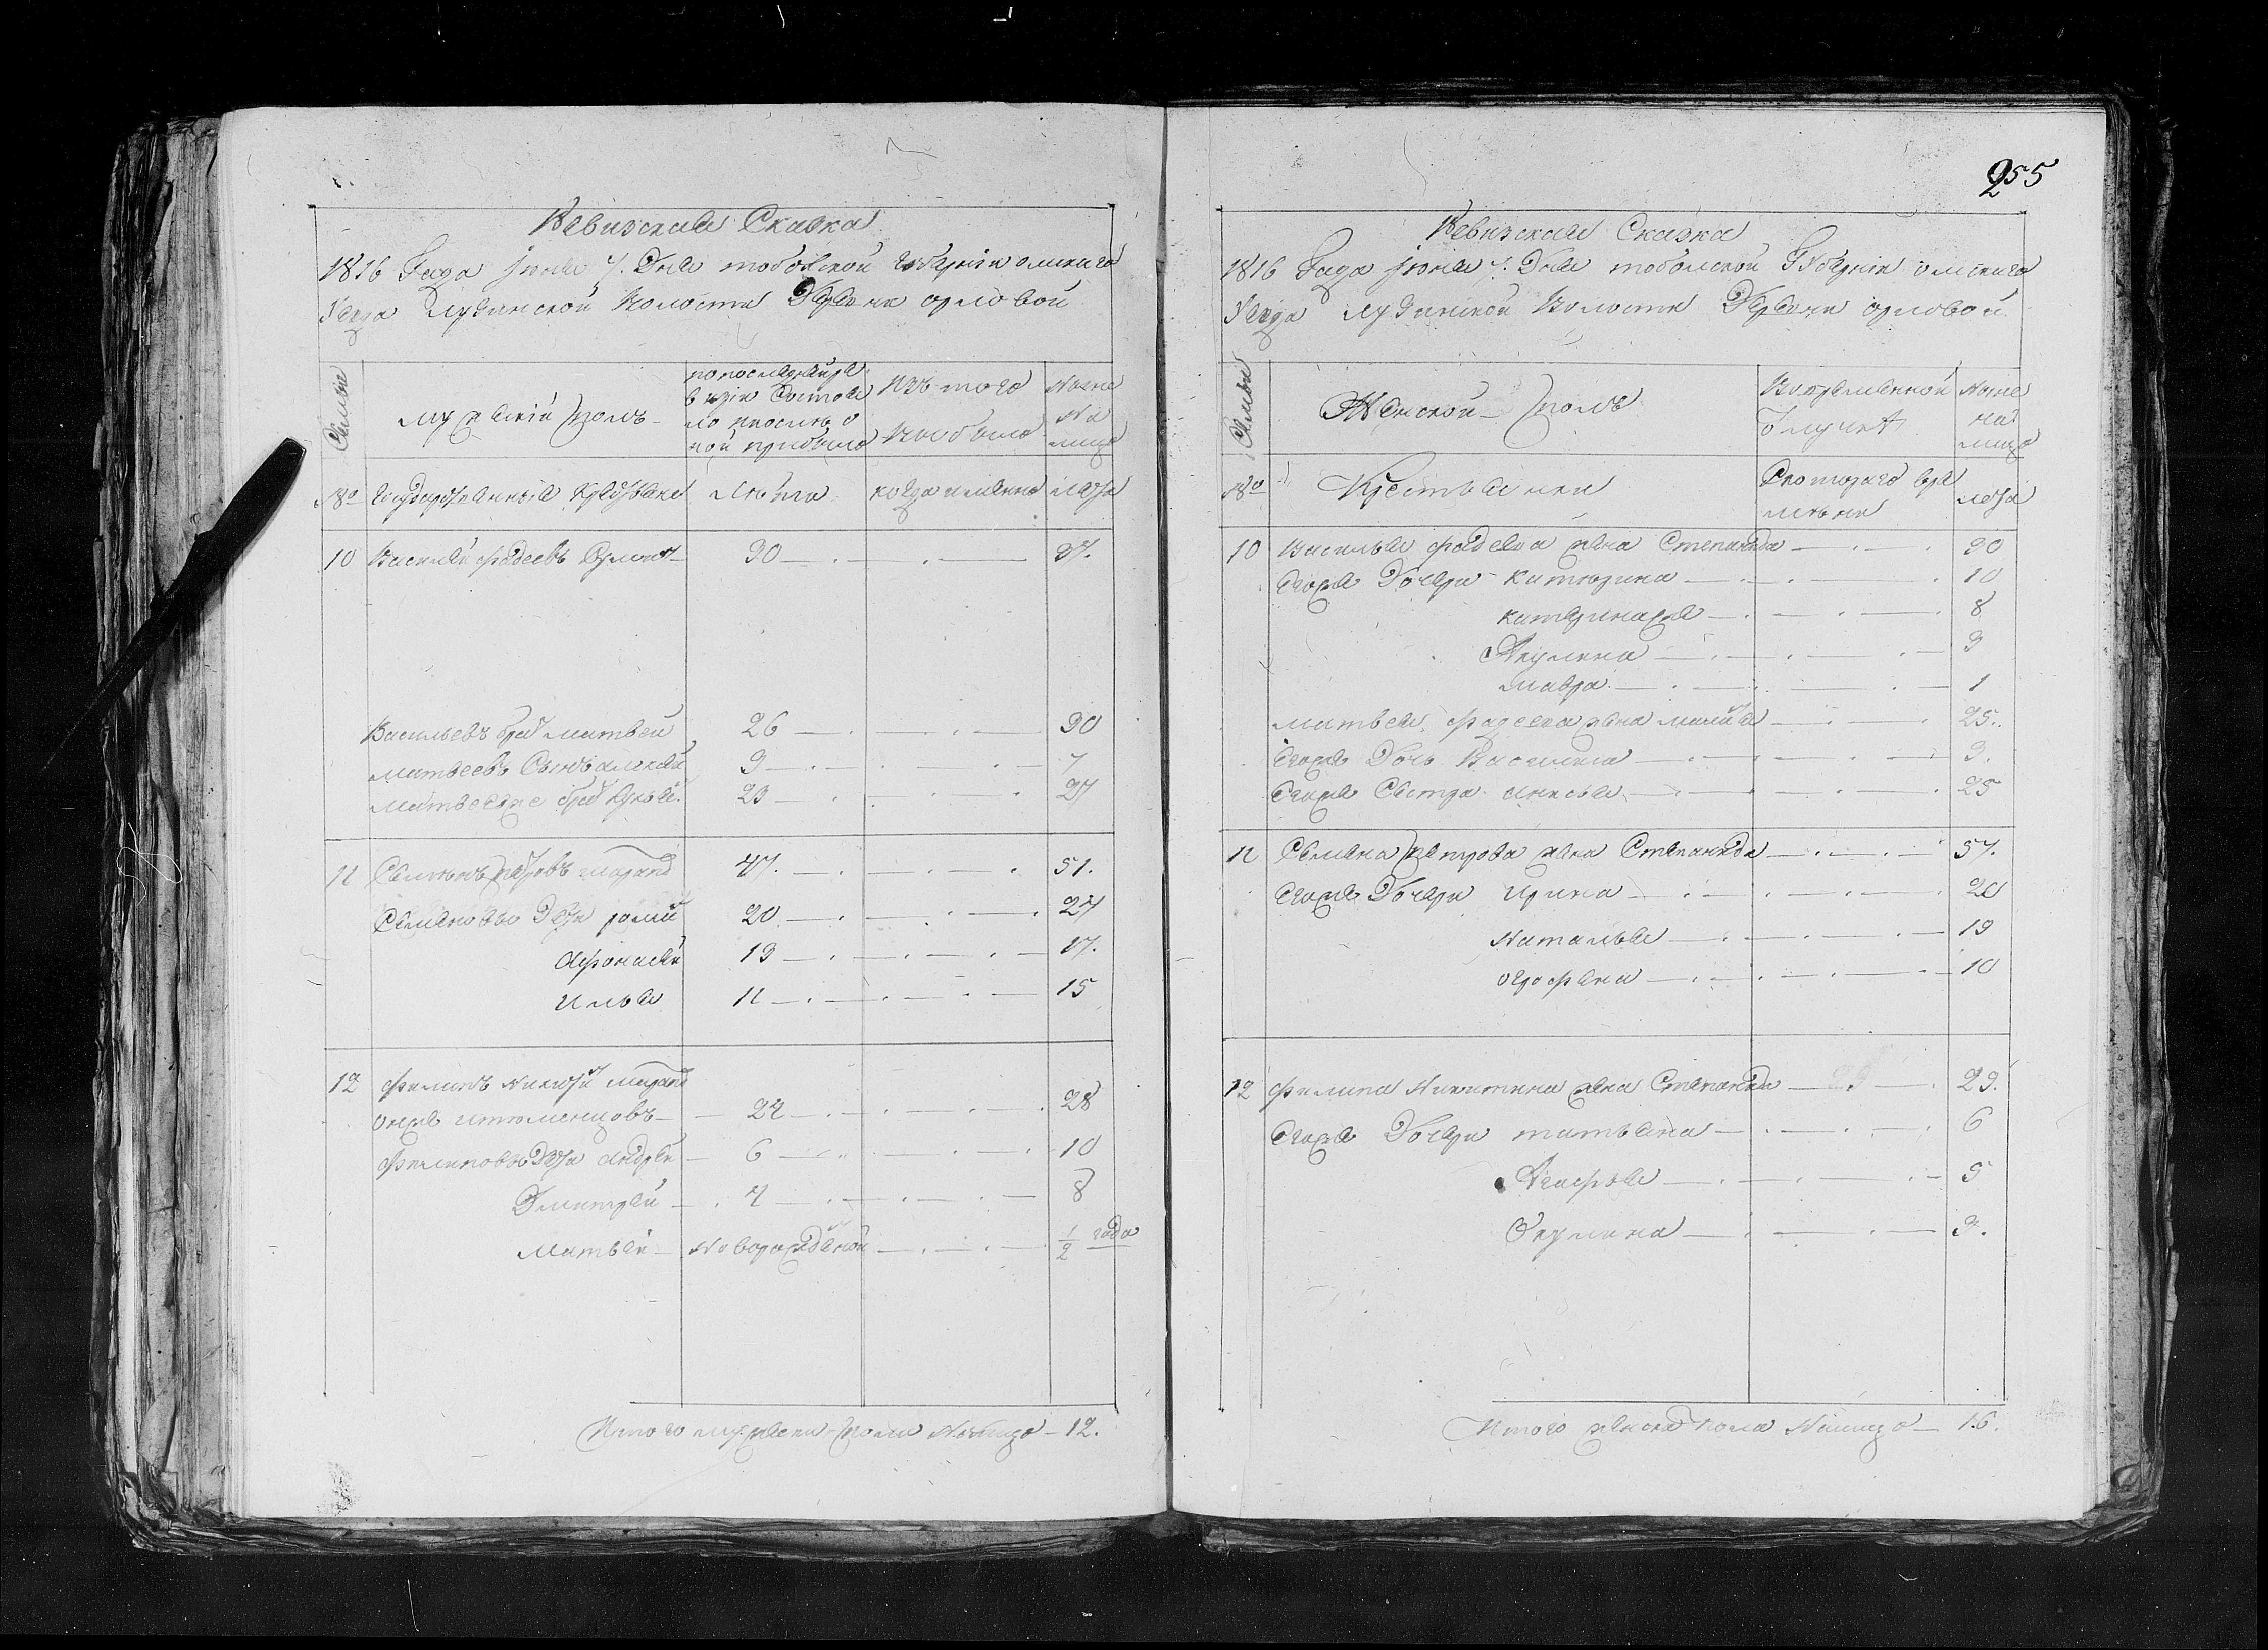 Ревизская Сказка
1816 Года июня 7. Дня тобольской губернии омскаго
Уезда Лузинской Волости Деревни орловой
Семьи
мужескій полъ
по последней ре
визіи Состоя
ло и после о
ной прибыло
Изъ того
выбыло
Ныне
на
лицо
№
Государственныя Крестьяне
Лета
когда имянно
лета
10 Василей фадеевъ 30 37.
Васильевъ брат матвей 26 30
матвеевъ Сынъ алексей 3 7
матвеевже брат 23 27
11 Семионъ петровъ 47. 51.
Семеновы Дети 20 27
Афонасей 13 17.
Илья 11 15
12 Филипъ Никитин
онже 24 28
Филиповы Дети андрей 6 10
Дмитрей 4 8
Матвей Новорожденой 1/2 года
Итого мужеска пола Налицо 12.
255
Ревизская Сказка
1816 Года июня 7. Дня тобольской Губерніи омскаго
Уезда Лузинской Волости Деревни орловой
Семьи
Женской полъ
Во временной
отлучке
Ныне
на
лицо
№
Крестьянки
С котораго вре
мени
лета
10 Василья фадеева жена Степанида 30
Егоже Дочери Катюрина 10
катеринаже 8
Акулина 3
Мавра 1
матвея фадеева жена 25.
Егоже Дочь Василиса 3.
Егоже Сестра анисья 25
11 Семена петрова жена Степанида 57.
Егоже Дочери Ирина 20
Наталья 13
10
12 Филипа Никитина жена Степанида 29.
Егоже Дочери татьяна 6
Агафья 5
Окулина 3.
Итого женска пола Налицо 16.